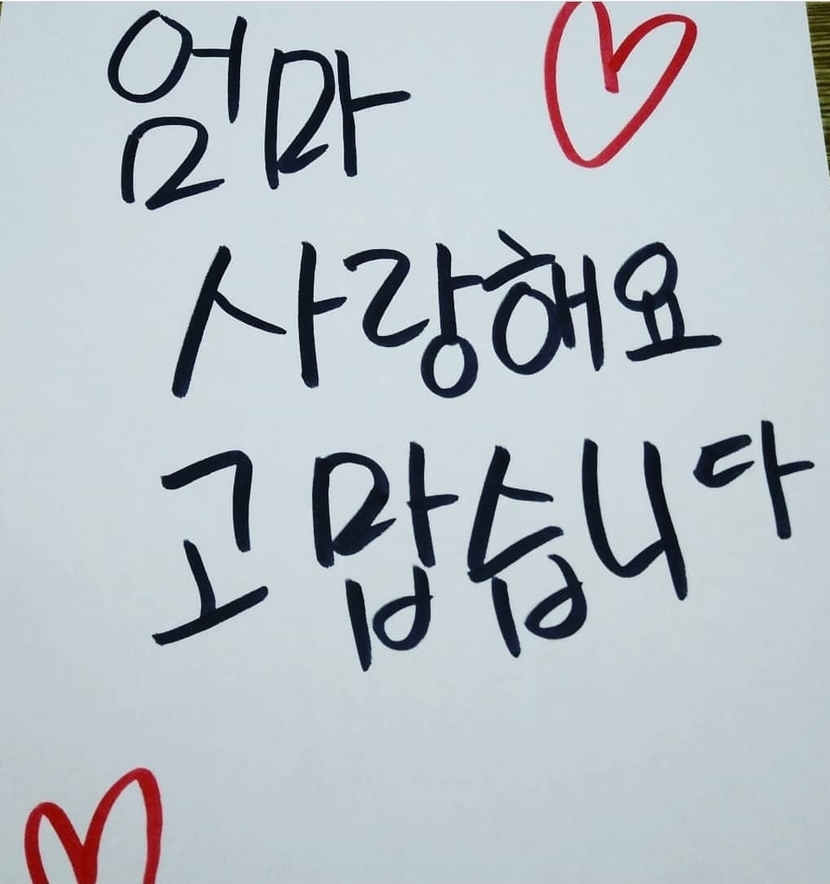 엄마
사랑해요
고맙습니다